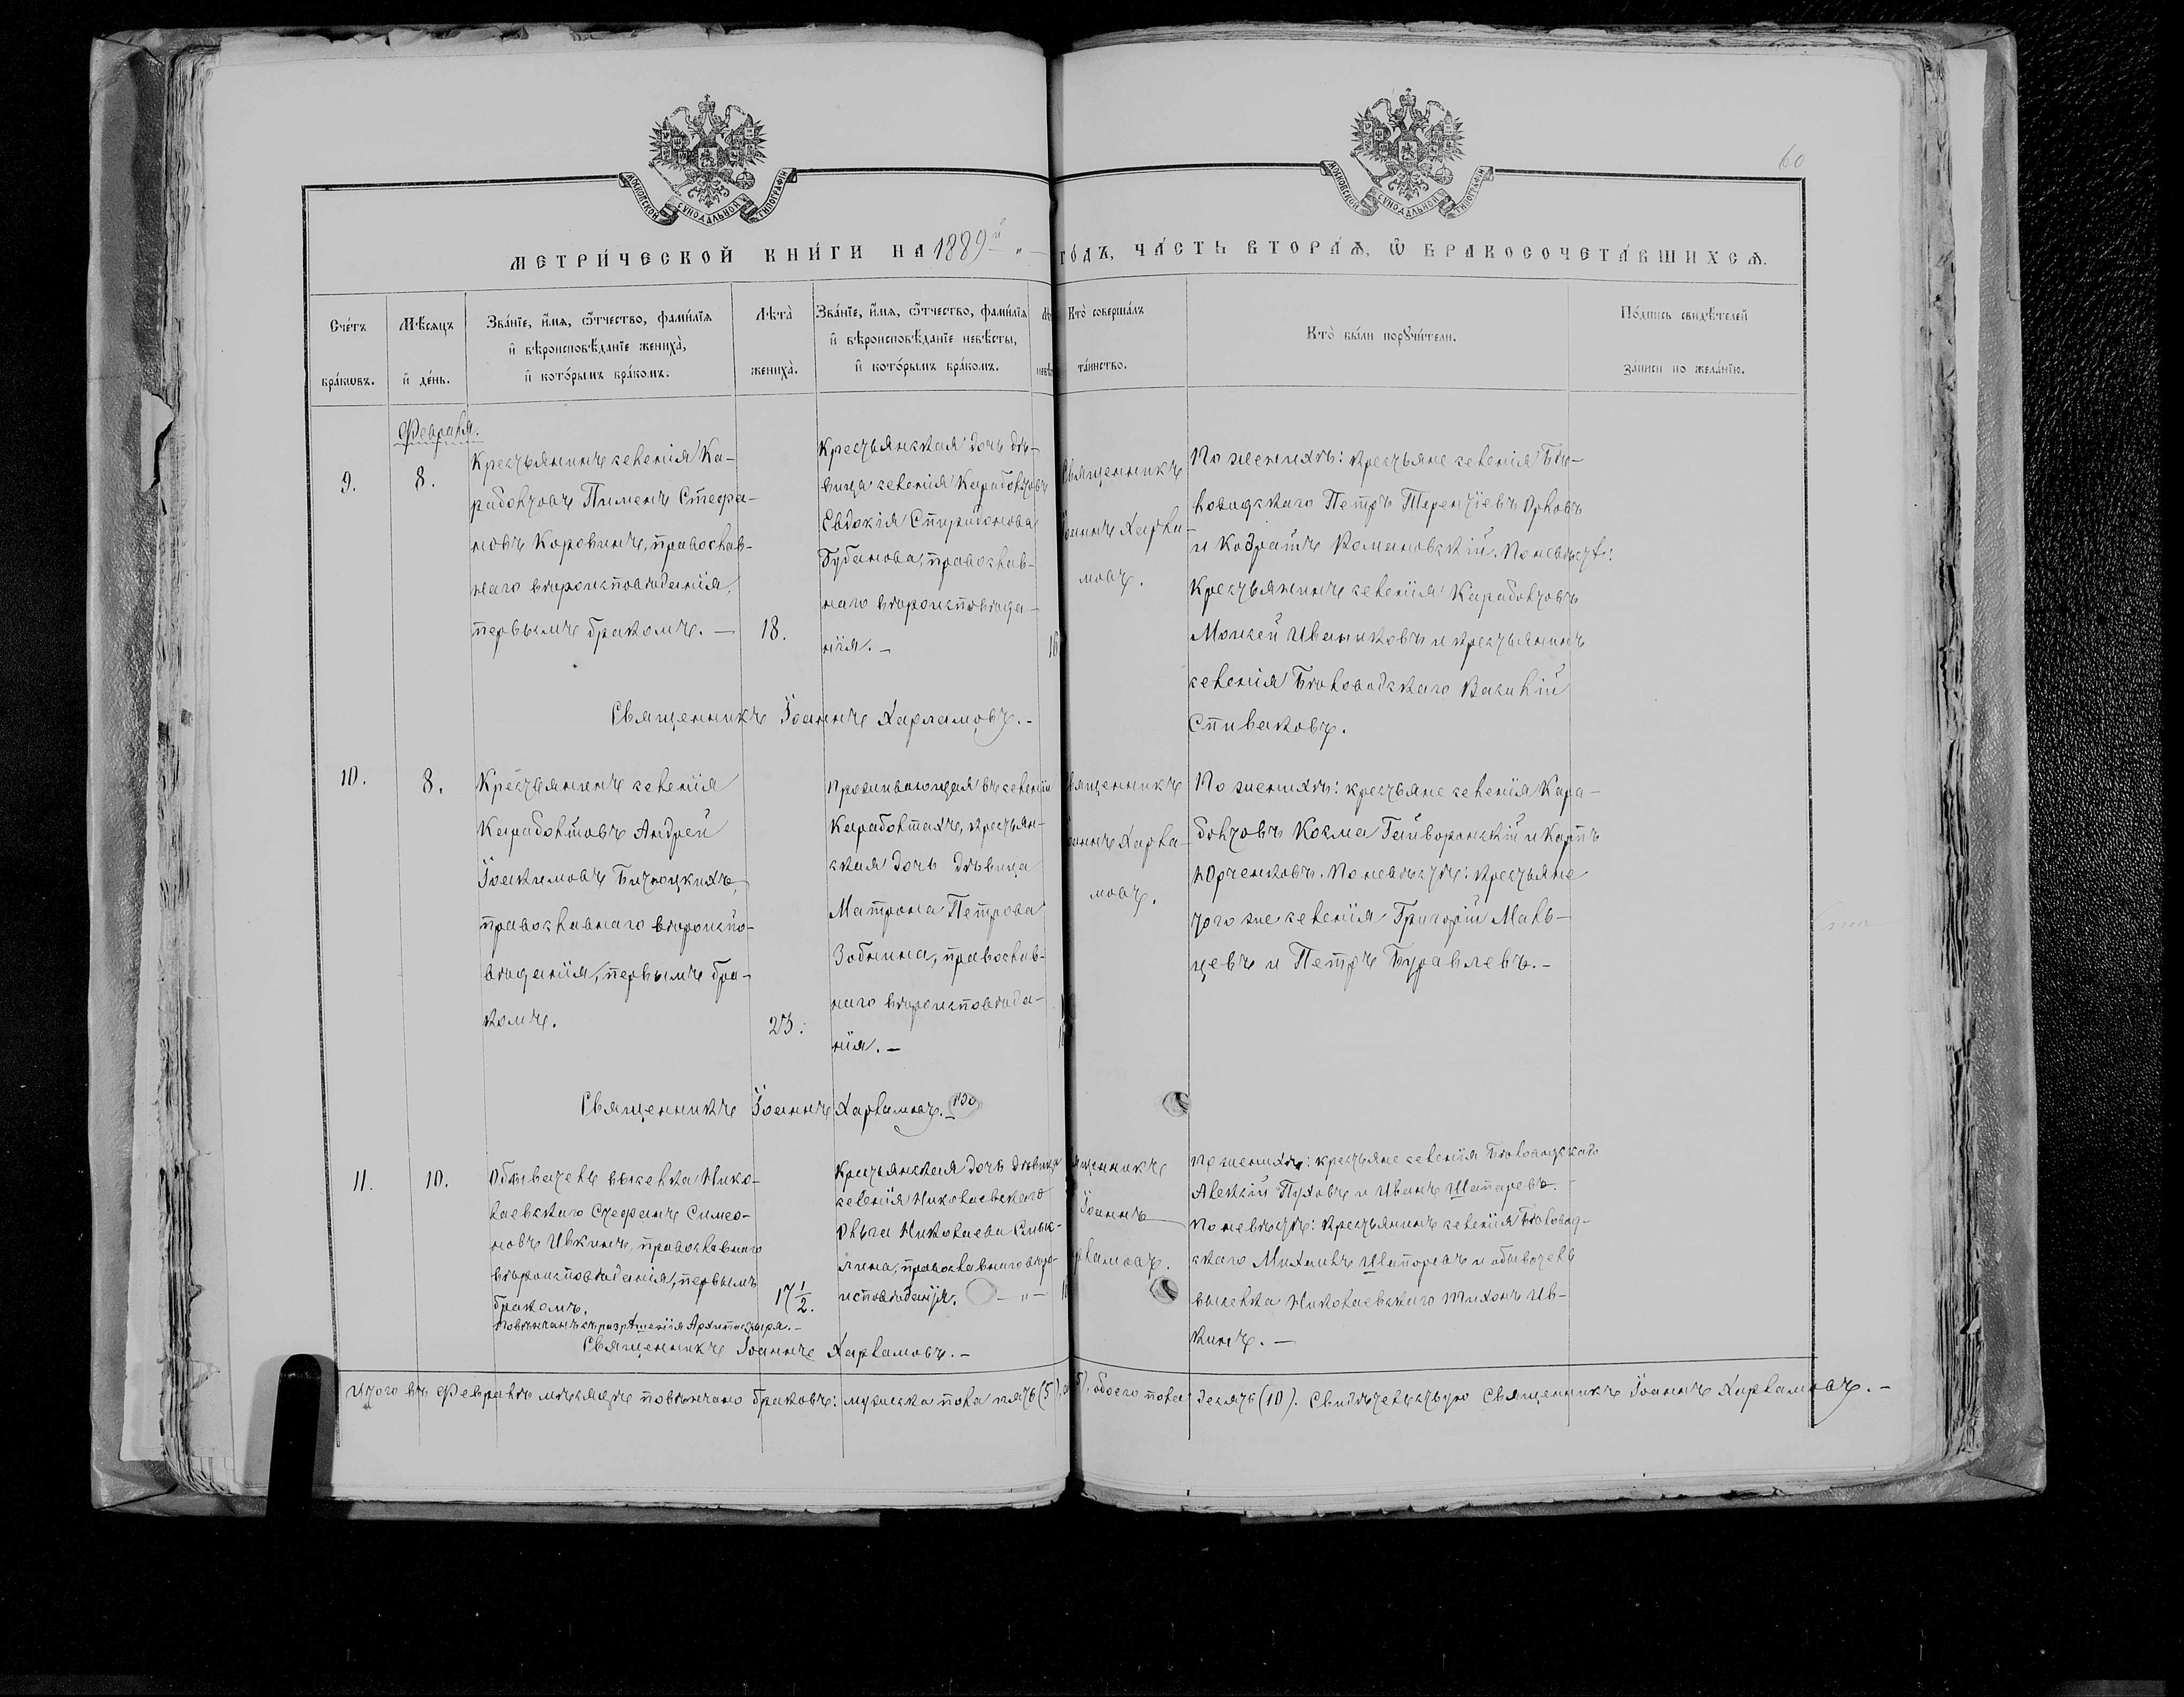 60
МОСКОВСКОЙ СѴНОДАЛЬНОЙ ТИПОГРАФІИ
МОСКОВСКОЙ СѴНОДАЛЬНОЙ ТИПОГРАФІИ
МЕТРИ́ЧЕСКОЙ КНИ́ГИ НА 1889й " — ГО́ДЪ, ЧА́СТЬ ВТОРА́Ѧ, Ѡ҆ БРАКОСОЧЕТА́ВШИХСѦ.
Сче́тъ
бра́кѡвъ.
Мѣ́сѧцъ
и҆ де́нь.
Зва́нїе, и҆́мѧ, ѻ҆́тчество, фами́лїѧ
и҆ вѣроисповѣ́данїе жениха̀,
и҆ кото́рымъ бра́комъ.
Лѣта̀
жениха̀.
Зва́нїе, и҆́мѧ, ѻ҆́тчество, фами́лїѧ
и҆ вѣроисповѣ́данїе невѣ́сты,
и҆ кото́рымъ бра́комъ.
Кто̀ соверша́лъ
та́инство.
Кто̀ бы́ли порꙋчи́тели.
По́дпись свидѣ́телей
за́писи по жела́нїю.
Февраля.
9.
8.
Крестьянинъ селенія Ка-
раболтовъ Пименъ Стефа-
новъ Коровинъ, православ-
наго вѣроисповѣданія,
первымъ бракомъ. —
18.
Крестьянская дочь дѣ-
вица селенія Караболтовъ
Евдокія Спиридонова
Губанова, православ-
наго вѣроисповѣда-
нія. —
16
Священникъ
Іоаннъ Харла-
мовъ.
По женихѣ: крестьяне селенія Бѣ-
ловодскаго Петръ Терентіевъ Орловъ
и Кодратъ Романовскій. По невѣстѣ:
крестьянинъ селенія Караболтовъ
Моисей Иваниковъ и крестьянинъ
селенія Бѣловодскаго Василій
Спиваковъ.
Священникъ Іоаннъ Харламовъ. —
10.
8.
Крестьянинъ селенія
Караболтовъ Андрей
Іоакимовъ Битюцкихъ,
православнаго вѣроиспо-
вѣданія, первымъ бра-
комъ.
23.
Проживающая въ селеніи
Караболтахъ, крестьян-
ская дочь дѣвица
Матрона Петрова
Зобнина, православ-
наго вѣроисповѣда-
нія. —
Священникъ
Іоаннъ Харла-
мовъ.
По женихѣ: крестьяне селенія Кара-
болтовъ Косма Гайворонскій и Карпъ
Юрченковъ. По невѣстѣ: крестьяне
того же селенія Григорій Маль-
цевъ и Петръ Буравлевъ. —
Священникъ Іоаннъ Харламовъ. —
11.
10.
Обыватель выселка Нико-
лаевскаго Стефанъ Симео-
новъ Ивкинъ, православнаго
вѣроисповѣданія, первымъ
бракомъ.
Повѣнчанъ съ разрѣшенія Архипастыря. —
17 1/2.
Крестьянская дочь дѣвица
селенія Николаевскаго
Ольга Николаева Смык-
лина, православнаго вѣро-
исповѣданія. — " —
Священникъ
Іоаннъ
Харламовъ.
По женихѣ: крестьяне селенія Бѣловодскаго
Алексій Пуховъ и Иванъ Шапаревъ. —
По невѣстѣ: крестьянинъ селенія Бѣловод-
скаго Михаилъ Шапоревъ и обыватель
выселка Николаевскаго Тихонъ Ив-
кинъ. —
Священникъ Іоаннъ Харламовъ. —
Итого въ Февралѣ мѣсяцѣ повѣнчано браковъ: мужска пола пять (5), 5), обоего пола десять (10). Свидѣтельствую Священникъ Іоаннъ Харламовъ. —